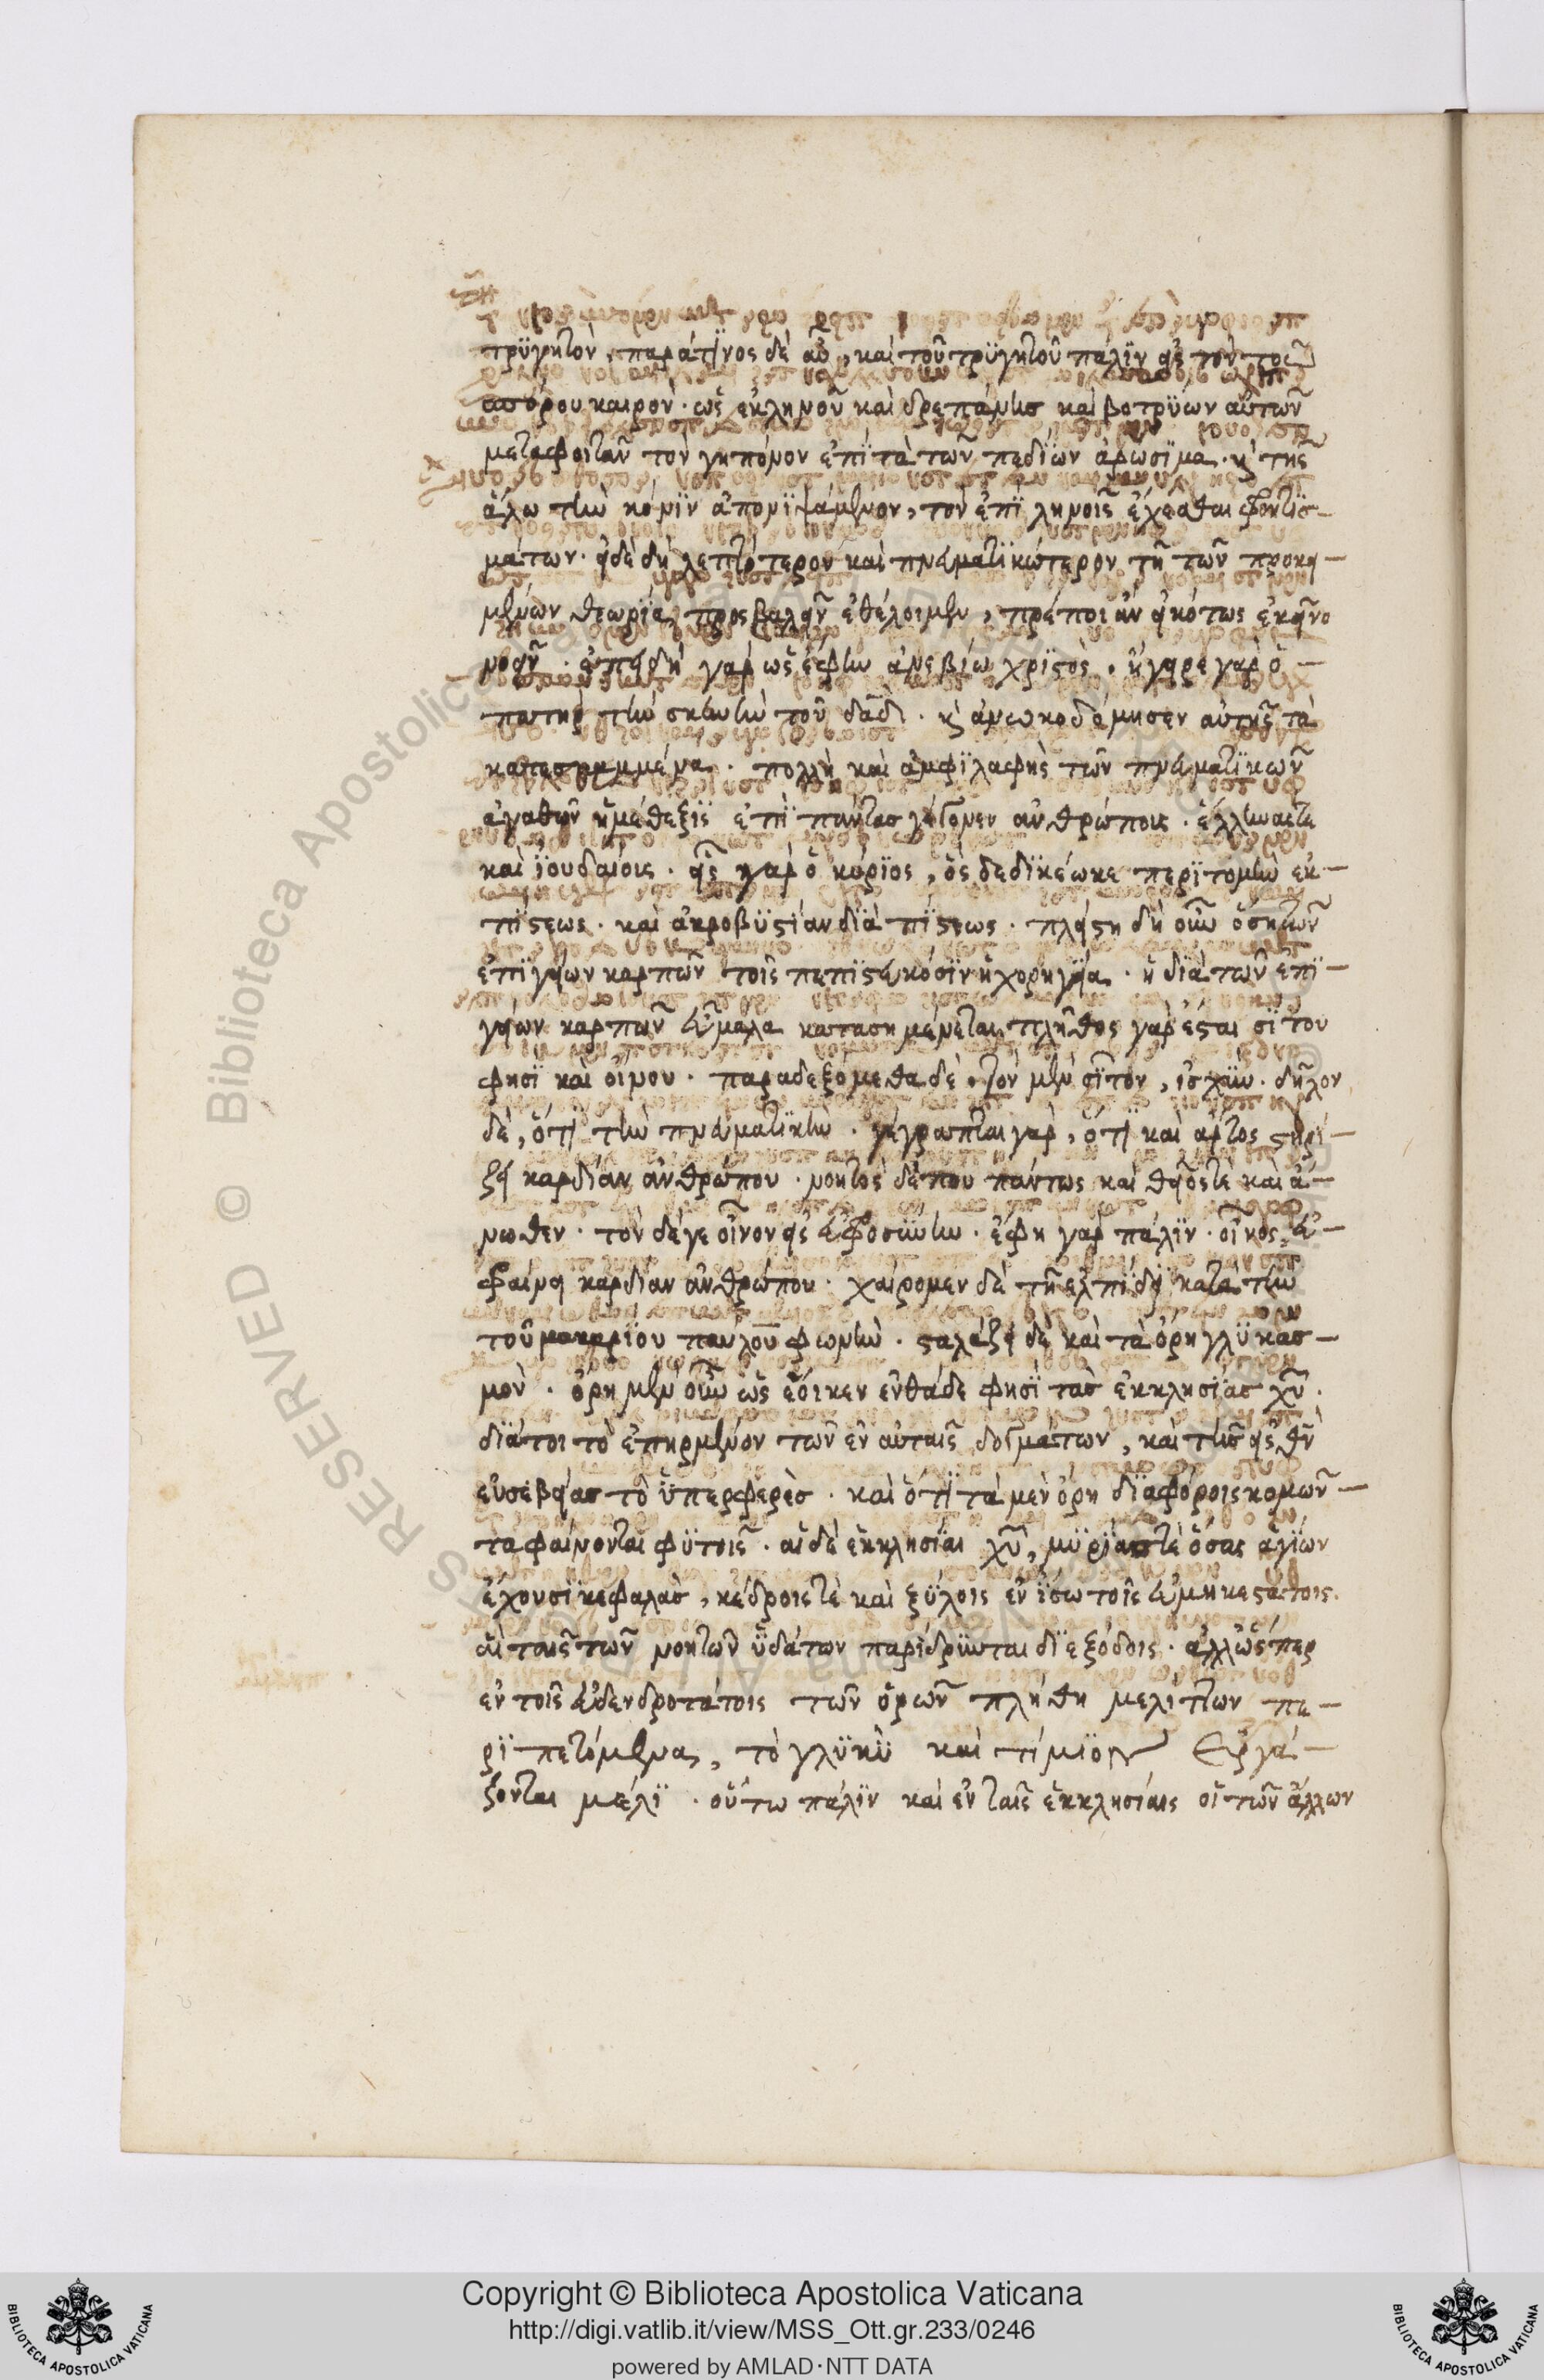 τρϋγητὸν, παρατῆνος δὲ αὖ, καὶ τοῦ τρϋγητοῦ πάλϊν εἰς τὸν τοῦ
σπόρου καιρόν. ὡς ἐκ ληνοῦ καὶ δρεπάνης καὶ βοτρϋων αὐτῶν
μεταφοιτᾶν τὸν γηπόνον ἐπῒ τὰ τῶν πεδίων ἀρωσϊμα. κ τῆς
ἅλω τὴν κόνϊν ἀπονϊψάμενον, τὸν ἐπῒ ληνοῖς ἔχεσθαι φροντϊσ–
μάτων. εἰ δὲ δὴ λεπτότερον καὶ πνευματϊκώτερον τῇ τῶν προκει–
μένων θεωρία, προσβαλεῖν ἐθέλοιμεν, πρέποι ἂν εἰκότως ἐκεῖνο
νοεῖν. ἐπειδὴ γὰρ ὡς ἔφην ἀνεβίω χρϊστὸς. ἤγειρε γὰρ ὁ –
πατὴρ τὴν σκηνὴν τοῦ δᾱδ. κ ἀνῳκοδόμησεν αὐτῆς τὰ
κατεσκαμμένα. πολλὴ καὶ ἀμφϊλαφὴς τῶν πνευματϊκῶν
ἀγαθῶν ἡ μέθεξϊς ἐπῒ πάντας γέγονεν ἀνθρώποις. ἕλλησϊτε
καὶ ϊουδαίοις. εἷς γὰρ ὁ κύρϊος, ὃς δεδϊκέωκε περϊτομὴν ἐκ –
πϊστεως. καὶ ἀκροβϋστίαν δϊὰ πϊστεως. πλείστη δὴ οὖν ὅση τῶν
ἐπϊγείων καρπῶν τοῖς πεπϊστευκόσϊν ἡ χορηγεία. ἢ δϊὰ τῶν ἐπϊ–
γείων καρπῶν εὖ μάλα κατασημένεται πλῆθος γὰρ ἔσται σϊτου
φησῒ καὶ οἴνου. παραδεξόμεθα δὲ. τὸν μὲν σῖτον, ἰσχϋν. δῆλον
δὲ, ὅτϊ τὴν πνευματϊκὴν. γέγραπται γὰρ, ὅτϊ καὶ ἄρτος στηρί–
ζει καρδίαν ἀνθρώπου. νοητὸς δέπου πάντως καὶ θεῖός τε καὶ ἄ–
νωθεν. τὸν δέγε οἶνον εἰς εὐφροσϋνην. ἔφη γὰρ πάλϊν. οἶνος εὐ–
φραίνει καρδίαν ἀνθρώπου. χαίρομεν δὲ τῇ ἐλπϊδι κατὰ τὴν
τοῦ μακαρίου παύλου φωνὴν. σταλάξει δὲ καὶ τὰ ὄρη γλϋκασ–
μὸν. ὄρη μὲν οὖν ὡς ἔοικεν ἐνθάδε φησῒ τὰς ἐκκλησίας χ̄ῡ.
δϊάτοι τὸ ἐπηρμένον τῶν ἐν αὐταῖς δογμάτων, καὶ τῆς εἰς θ̄ν̄
εὐσεβείας τὸ ὑπερφερὲς. καὶ ὅτϊ τὰ μὲν ὄρη δϊαφόροις κομῶν –
τα φαίνονται φϋτοῖς. αἱ δὲ ἐκκλησίαι χ̄ῡ, μϋρίας τὲ ὅσας ἁγίων
ἔχουσϊ κεφαλὰς, κέδροις τὲ καὶ ξϋλοις ἐν ϊσω τοῖς εὐμηκεστάτοις.
αἳ ταῖς τῶν νοητῶν ϋδάτων παρίδρϋνται δϊεξόδοις. ἀλλ' ὥσπερ
ἐν τοῖς εὐδενδροτάτοις τῶν ὀρῶν πλήθη μελιττῶν πε–
ρϊπετόμεναι, τὸ γλϋκϋ καὶ τίμϊον ἐργά–
ζονται μέλϊ. οὕτω πάλϊν καὶ ἐν ταῖς ἐκκλησίαις οἱ τῶν ἄλλων
Copyright © Biblioteca Apostolica Vaticana
http://digi.vatlib.it/view/MSS_Ott.gr.233/0246
powered by AMLAD·NTT DATA
BIBLIOTECA APOSTOLICA VATICANA
BIBLIOTECA APOSTOLICA VATICANA